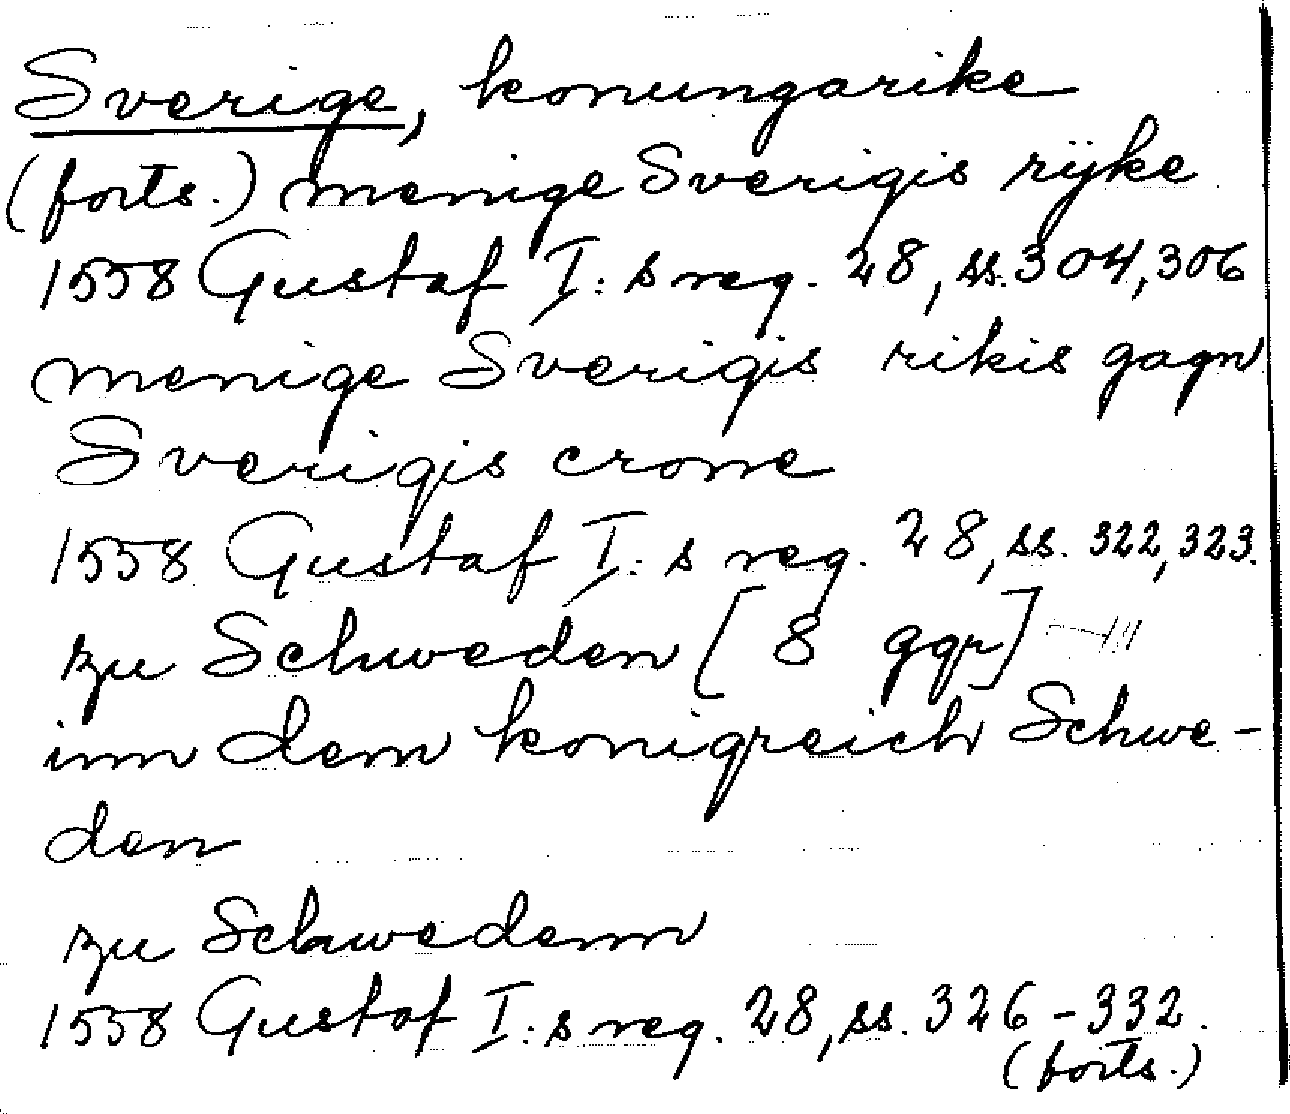 Sverige, konungarike
(forts.) menige Sverigis rijke
1558 Gustaf I:s reg. 28, ss. 304, 306
menige Sverigis rikis gagn
Sverigis crone
1558 Gustaf I:s reg. 28, ss. 322, 323.
zu Schweden [8 ggr]
inn dem konigreich Schwe-
den
zu Schwedenn
1558 Gustaf I:s reg. 28, ss. 326-332.
(forts.)